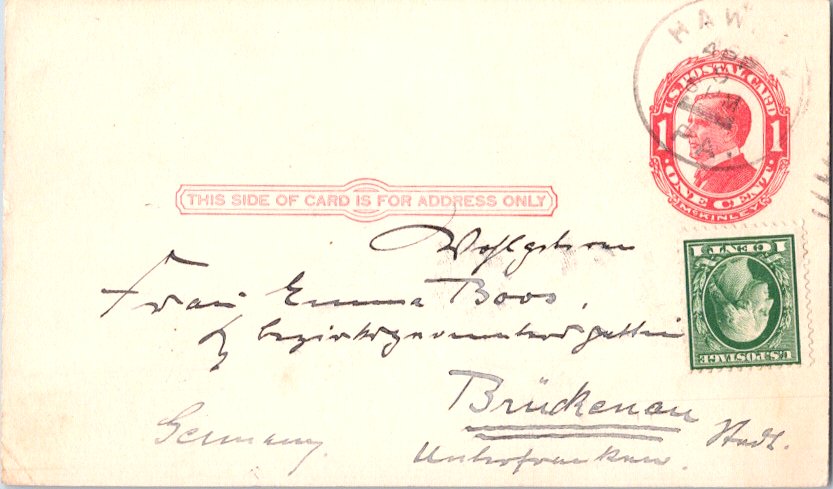 HAW
U.S. POSTAL CARD
1 1
ONE CENT
McKINLEY
THIS SIDE OF CARD IS FOR ADDRESS ONLY
1 CENT 1
U.S. POSTAGE
Wohlgeboren
Frau Emma Boos,
Brückenau Stadt.
Unterfranken.
Germany.